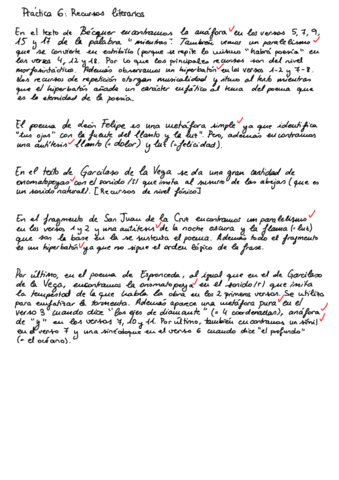 Práctica 6: Recursos literarios
En el texto de Bécquer encontramos la anáfora en los versos 5, 7, 9,
15 y 17 de la palabra "mientras". También vemos un paralelismo
que se convierte en estribillo (porque se repite lo mismo "habrá poesía") en
los versos 4, 12 y 18. Por lo que los principales recursos son del nivel
morfosintáctico. Además observamos un hipérbaton en los versos 1-2 y 7-8.
Los recursos de repetición otorgan musicalidad y ritmo al texto mientras
que el hipérbaton añade un carácter enfático al tema del poema que
es la eternidad de la poesía.
El poema de León Felipe es una metáfora simple ya que identifica
"tus ojos" con la fuente del llanto y la luz". Pero, además encontramos
una antítesis llanto (= dolor) y luz (= felicidad).
En el texto de Garcilaso de la Vega se da una gran cantidad de
onomatopeyas con el sonido /s/ que imita al susurro de las abejas (que es
un sonido natural). [Recursos de nivel fónico]
En el fragmento de San Juan de la Cruz encontramos un paralelismo
en los versos 1 y 2 y una antítesis de la noche oscura y la llama (= luz)
que son la base en la se sustenta el poema. Además todo el fragmento
es un hipérbaton ya que no sigue el orden lógico de la frase.
Por último, en el poema de Espronceda, al igual que en el de Garcilaso
de la Vega, encontramos la onomatopeya en el sonido /r/ que imita
la tempestad de la que habla la obra en los 2 primeros versos. Se utiliza
para enfatizar la tormenta. Además aparece una metáfora pura en el
verso 3 cuando dice "los ejes de diamante" (= 4 coordenadas), anáfora
de "y" en los versos 7, 10 y 11. Por último, también encontramos un símil
en el verso 7 y una sinécdoque en el verso 6 cuando dice "el profundo"
(= el océano).